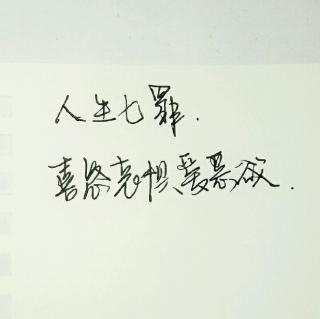 人生七罪.
喜怒哀惧爱恶欲.